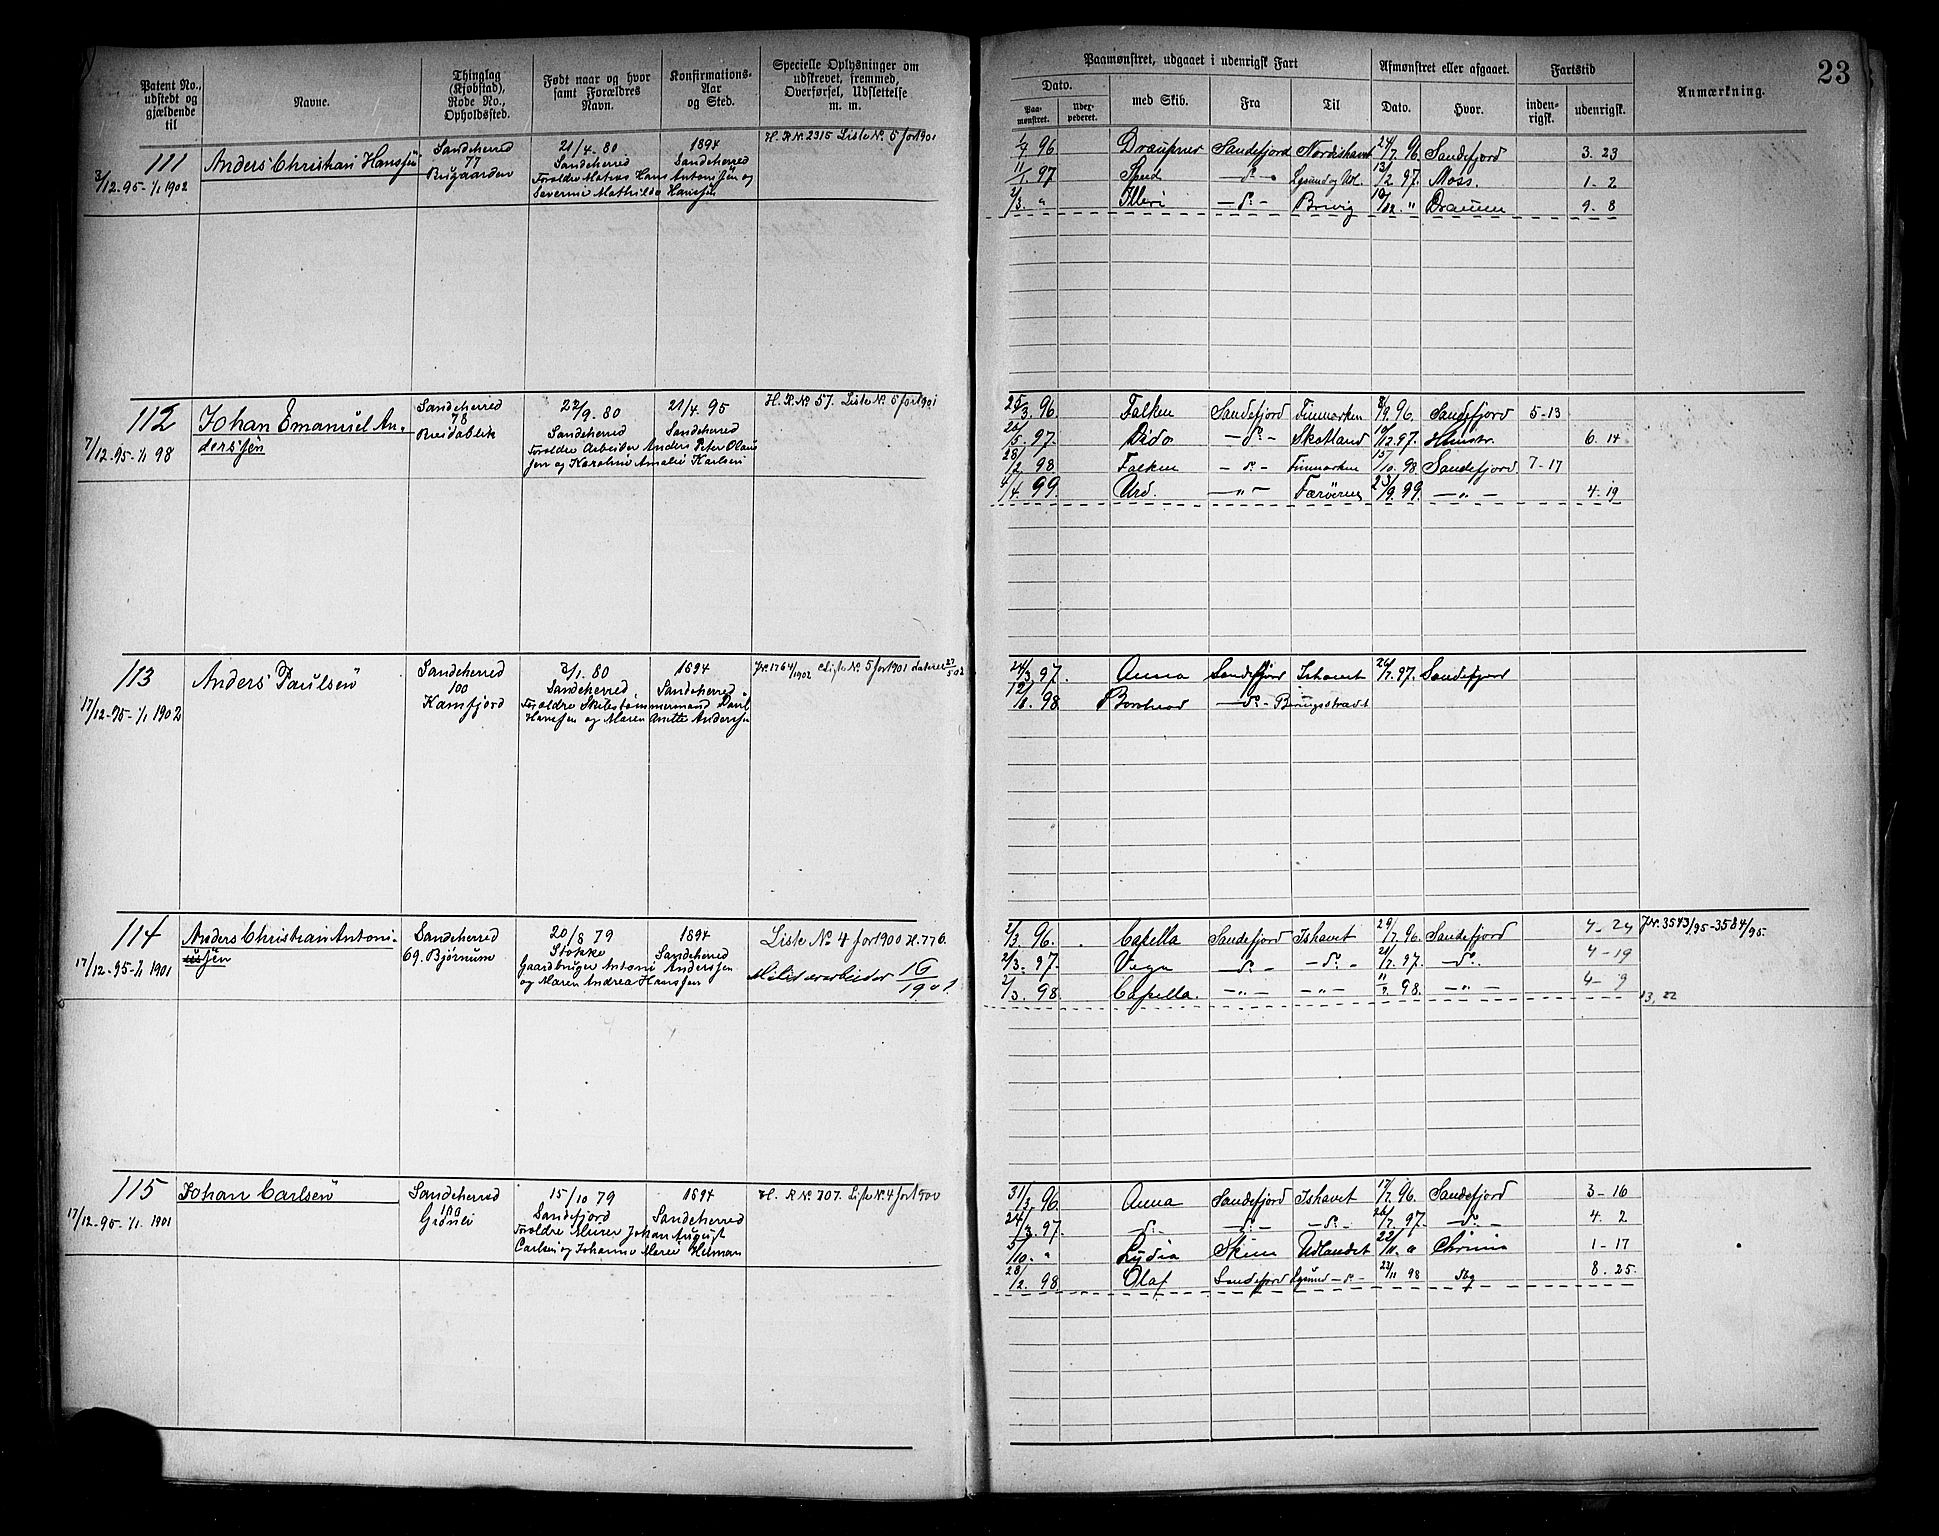 Patent No., udstedt og gjældende til
Navne.
Thinglag (Kjøbstad), Rode No., Opholdssted.
Født naar og hvor samt Forældres Navn.
Konfirmations-Aar og Sted.
Specielle Oplysninger om udskrevet, fremmed, Overførsel, Udslettelse m. m.
Paamønstret, udgaaet i udenrigsk Fart
Afmønstret eller afgaaet.
Fartstid
Anmærkning.
23
Dato.
Paa-mønstret.
med Skib.
Fra
Til
Dato.
Hvor.
inden-rigsk.
udenrigsk.
111
3/12.95-1/1 1902
Anders Christian Hanssen
Sandeherred
77
21/4. 80
Sandeherred
Forældre Matros Hans Antonissen og
Severine Mathilde Hanssen
1894
Sandeherred
H. R. N. 2315 Liste No. 5 for 1901
96 Draupner Sandefjord Nordishavet 24/7 96 Sandefjord 3. 23
11/1. 97 Speed — do — 13/2 97. Moss. 1 - 2
2/3. " Iller — do — Brevig " 9. 8
112
7/12.95-1/1 98
Johan Emanuel An-
derssen
Sandeherred
78
Breidablik
22/9. 80
Sandeherred
Forældre Arbeider Anders Peter Olaus
sen og Karoline Amalie Karlsen
21/4. 95
Sandeherred
H. R. No 57. Liste No. 5 for 1901
25/3 96. Falken Sandefjord Finmarken 8/9. 96. Sandefjord 5-13
22/5. 97. Dido — do — Skotland 97. 6. 14
28/2. 98. Falken — do — Finmarken 15/10. 98. Sandefjord. 7-17
4/4. 99. Urd. — " — Færøerne 23/9. 99. — " — 4. 19
113
17/12-95-1/1 1902
Anders Paulsen
Sandeherred
100
Kamfjord
2/1. 80
Sandeherred
Forældre Skibstømmermand Paul
Hanssen og Maren Anette Anderssen
1894
Sandeherred
Jr. 1764/1902 Liste No. 5 for 1901
24/3 97. Anna Sandefjord Ishavet 26/7. 97. Sandefjord
98 — do — Beringsstrædet
114
17/12-95-1/1 1901
Anders Christian Antoni-
ussen
Sandeherred
69. Bjørnum
20/8 79
Stokke
Gaardbruger Antoni Anderssen
og Maren Andrea Hanssen
1894
Sandeherred
Liste No 4 for 1900 H. 776.
Militærarbeider 16/1901
2/3. 96. Capella Sandefjord Ishavet 29/7. 96. Sandefjord 4 - 24 Jr. 3543/95 - 3584/95
2/3. 97. Vega — do — — do — 21/7. 97. — do — 4 - 19
2/3. 98 Capella. — " — — " — 98. — " — 4 - 9
13, 22
115
17/12-95-1/1. 1901
Johan Carlsen
Sandeherred
15/10 79
Sandefjord
Forældre Murer Johan August
Carlsen og Johanne Marie Herman
1894
Sandeherred
H. R No 707. Liste No. 4 for 1900
31/3. 96 Anna Sandefjord Ishavet 17/7. 96. Sandefjord 3 - 16
24/3. 97. — do — — do — — do — 26/7. 97. — do — 4. 2
5/10. " Lydia Skien Udlandet 22/11. " Chrania 1 - 17
28/2. 98 Olaf Sandefjord — do — 22/11 98 Sbg 8. 25.